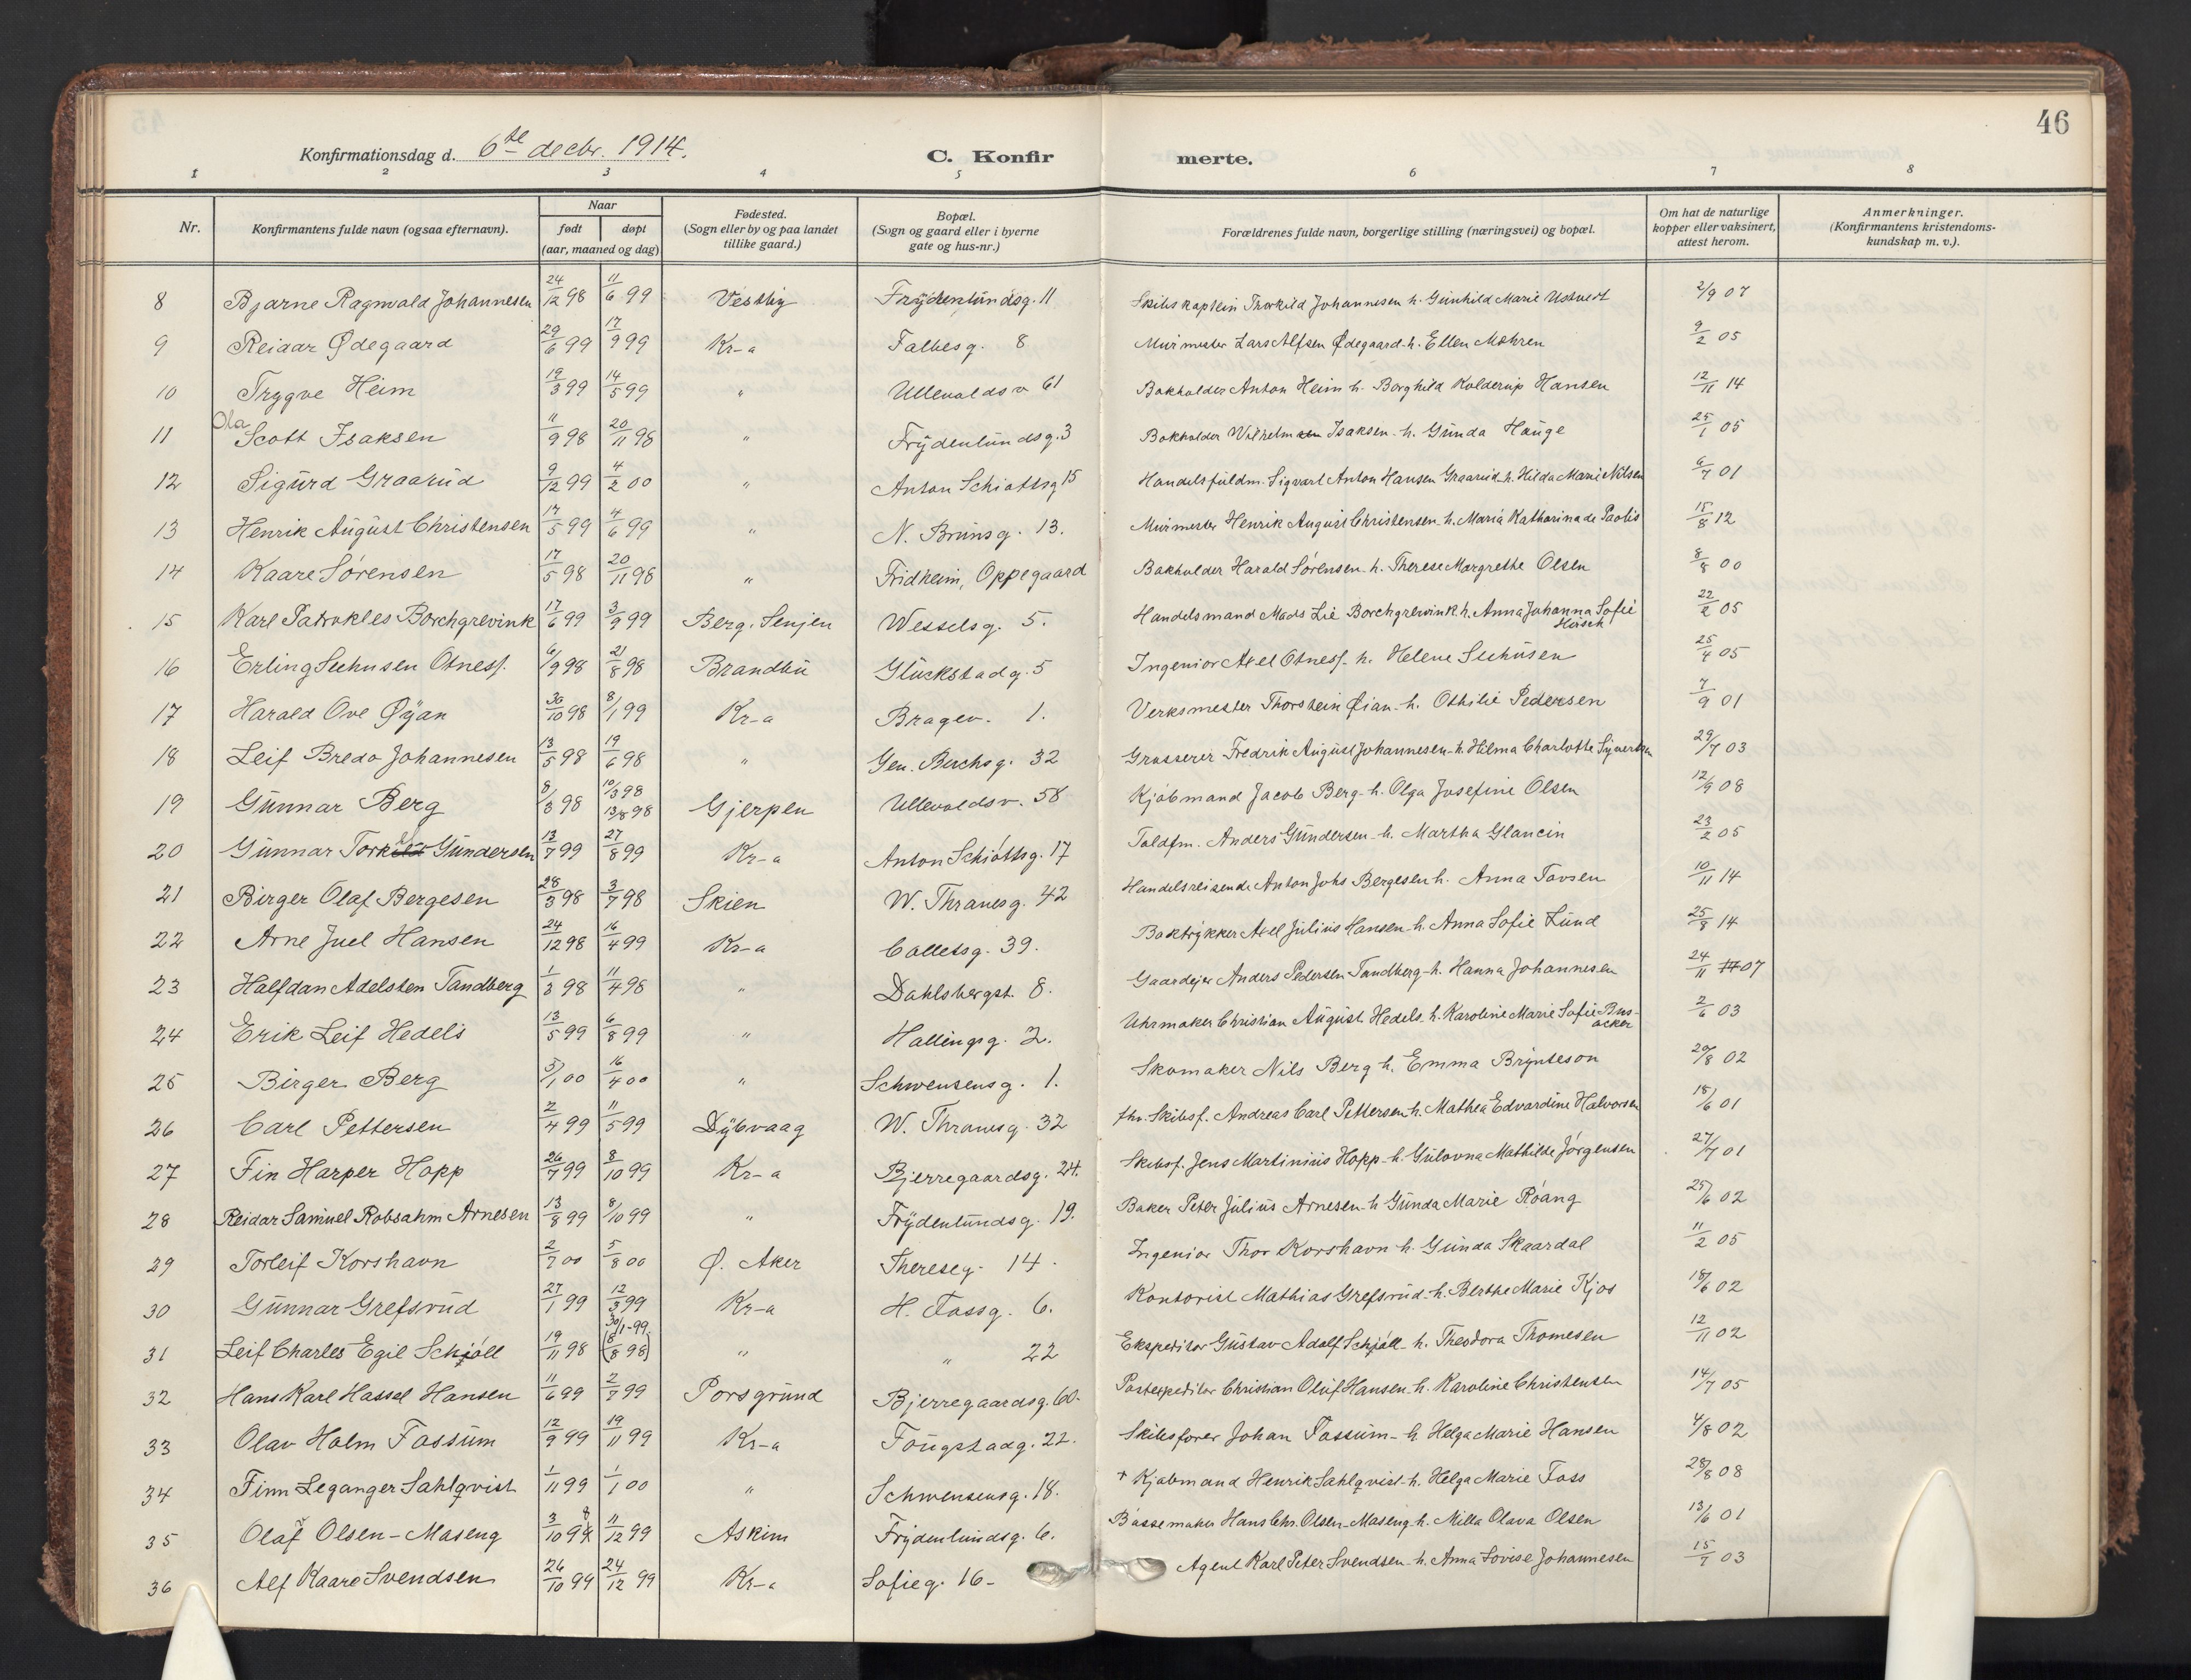 46
Konfirmationsdag d. 6te decbr. 1914.
C. Konfirmerte.
1 2 3 4 5 6 7 8
Nr.
Konfirmantens fulde navn (ogsaa efternavn).
Naar
født døpt
(aar, maaned og dag)
Fødested.
(Sogn eller by og paa landet
tillike gaard.)
Bopæl.
(Sogn og gaard eller i byerne
gate og hus-nr.)
Forældrenes fulde navn, borgerlige stilling (næringsvei) og bopæl.
Om hat de naturlige
kopper eller vaksinert,
attest herom.
Anmerkninger.
(Konfirmantens kristendoms-
kundskap m. v.).
8 Bjarne Ragnvald Johannesen 24/12 98 11/6 99 Vestby Frydenlundsg. 11 Skibskaptein Thorkild Johannesen h. Gunhild Marie Ustvedt 2/9 07
9 Reidar Ødegaard 29/6 99 17/9 99 Kr-a Falbesg. 8 Murmester Lars Alfsen Ødegaard h. Ellen Mohren 9/2 05
10 Trygve Heim 19/3 99 14/5 99 " Ullevoldsv 61 Bokholder Anton Heim h. Borghild Kolderup Hansen 12/11 14
11 Ola Scott Isaksen 11/9 98 20/11 98 " Frydenlundsg. 3 Bokholder Wilhelm Isaksen h. Gunda Hauge 25/1 05
12 Sigurd Graarud 9/12 99 4/2 00 " Anton Schiøttsg 15 Handelsfuldm. Sigvart Anton Hansen Graarud h. Hilda Marie Nilsen 6/7 01
13 Henrik August Christensen 17/5 99 4/6 99 " N. Brunsg. 13. Murmester Henrik August Christensen h. Maria Katharina de Paolis 15/8 12
14 Kaare Sørensen 17/5 98 20/11 98 " Fridheim, Oppegaard Bokholder Harald Sørensen h. Therese Margrethe Olsen 8/8 00
15 Karl Patrokles Borchgrevink 17/6 99 3/9 99 Berg, Senjen Wesselsg. 5. Handelsmand Mads Lie Borchgrevink h. Anna Johanna Sofie Hirsch 22/2 05
16 Erling Seehusen Otness. 6/9 98 21/8 98 Brandbu Glückstadg. 5 Ingeniør Axel Otness h. Helene Seehusen 25/4 05
17 Harald Ove Øyan 30/10 98 8/1 99 Kr-a Bragev. 1. Verksmester Thorstein Øian h. Othilie Pedersen 7/9 01
18 Leif Bredo Johannesen 13/5 98 19/6 98 " Gen. Buchsg. 32 Grosserer Fredrik August Johannesen h. Hilma Charlotte Syvertsen 29/7 03
19 Gunnar Berg 8/8 98 10/3 98 13/8 98 Gjerpen Ullevoldsv. 58 Kjøbmand Jacob Berg h. Olga Josefine Olsen 12/9 08
20 Gunnar Torkild Gundersen 13/7 99 27/8 99 Kr-a Anton Schiøttsg. 17 Toldfm. Anders Gundersen h. Martha Glancin 23/2 05
21 Birger Olaf Bergesen 28/3 98 3/7 98 Skien W. Thranesg. 42 Handelsreisende Anton Johs Bergesen h. Anna Tovsen 10/11 14
22 Arne Juel Hansen 24/12 98 16/4 99 Kr-a Colletsg. 39. Boktrykker Axel Julius Hansen h. Anna Sofie Lund 25/8 14
23 Halfdan Adelsten Tandberg 1/3 98 11/4 98 " Dahlsbergst. 8. Gaardejer Anders Pedersen Tandberg h. Hanna Johannesen 24/11 07
24 Erik Leif Hedels 13/5 99 6/8 99 " Hallingsg. 2. Uhrmaker Christian August Hedels h. Karoline Marie Sofie Busacker 2/6 03
25 Birger Berg 5/1 00 16/4 00 " Schwensensg. 1. Skomaker Nils Berg h. Emma Brynteson 29/8 02
26 Carl Pettersen 2/4 99 11/5 99 Dybvaag W. Thranesg. 32 fhv. Skibsf. Andreas Carl Pettersen h. Mathea Edvardine Halvorsen 18/6 01
27 Fin Harper Hopp 26/7 99 8/10 99 Kr-a Bjerregaardsg. 24. Skibsf. Jens Martinius Hopp h. Gulovna Mathilde Jørgensen 27/7 01
28 Reidar Samuel Robsahm Arnesen 13/8 99 8/10 99 " Frydenlundsg. 19. Baker Peter Julius Arnesen h Gunda Marie Røang 25/6 02
29 Torleif Korshavn 2/7 00 5/8 00 Ø. Aker Thereseg. 14. Ingeniør Thor Korshavn h. Gunda Skaardal 11/2 05
30 Gunnar Grefsrud 27/1 99 12/3 99 Kr-a H. Fossg. 6. Kontorist Mathias Grefsrud h. Berthe Marie Kjos 18/6 02
31 Leif Charles Egil Schjøll 19/11 98 30/1-99 (8/8 98) " " 22 Ekspeditør Gustav Adolf Schjøll h. Theodora Thomesen 12/11 02
32 Hans Karl Hassel Hansen 11/6 99 2/7 99 Porsgrund Bjerregaardsg. 60. Postexpeditør Christian Oluf Hansen h. Karoline Christensen 14/7 05
33 Olav Holm Fossum 12/9 99 19/11 99 Kr-a Tougstadg. 22. Skibsfører Johan Fossum h. Helga Marie Hansen 4/8 02
34 Finn Leganger Sahlqvist 1/11 99 1/1 00 " Schwensensg. 18. + Kjøbmand Henrik Sahlqvist h. Helga Marie Foss 28/8 08
35 Olaf Olsen-Maseng 3/10 98 11/12 99 Askim Frydenlundsg. 6. Børsemaker Hans Chr. Olsen-Maseng h. Milla Olava Olsen 13/6 01
36 Alf Kaare Svendsen 26/10 99 24/12 99 Kr-a Sofieg. 16- Agent Karl Peter Svendsen h. Anna Lovise Johannesen 15/7 03